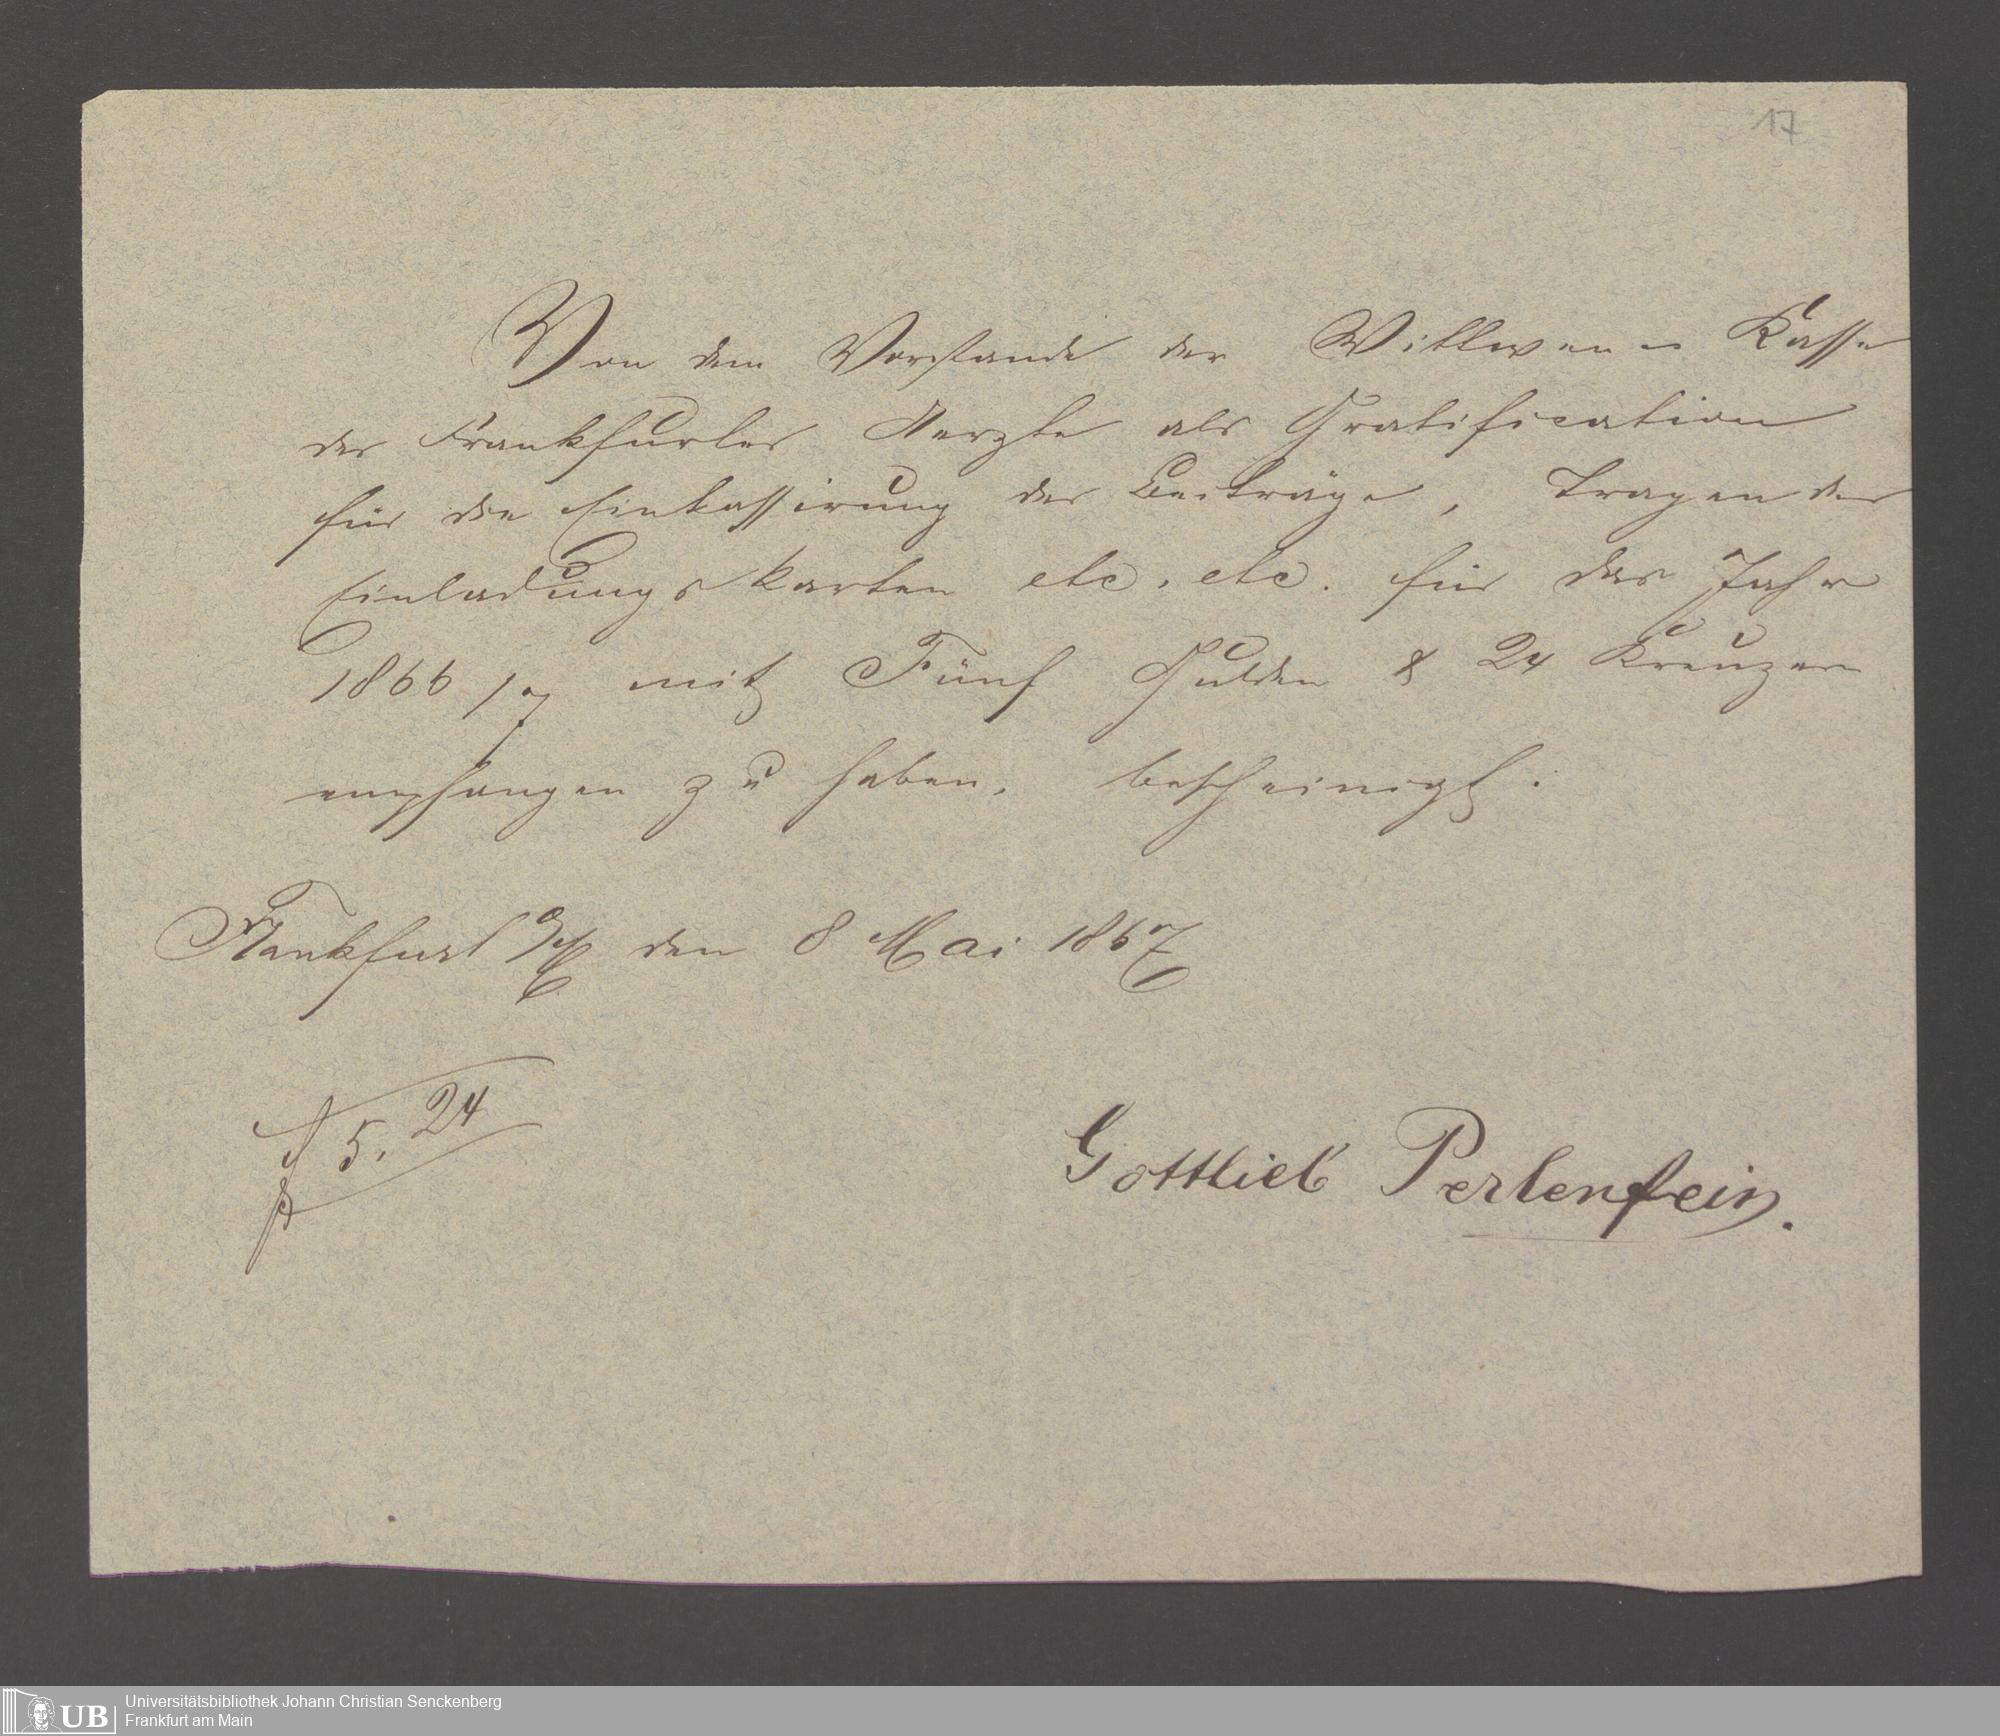 17
Von dem Vorstande der Wittwen = Kasse
der Frankfurter Aerzte als Gratification
für die Einkassirung der Beiträge, Tragen der
Einladungskarten etc. etc. für das Jahr
1866/7 mit Fünf Gulden & 24 Kreuzer
empfangen zu haben, bescheinigt:
Frankfurt a/M den 8 Mai 1867
f 5. 24
Gottlieb Perlenfein.
UB
Universitätsbibliothek Johann Christian Senckenberg
Frankfurt am Main